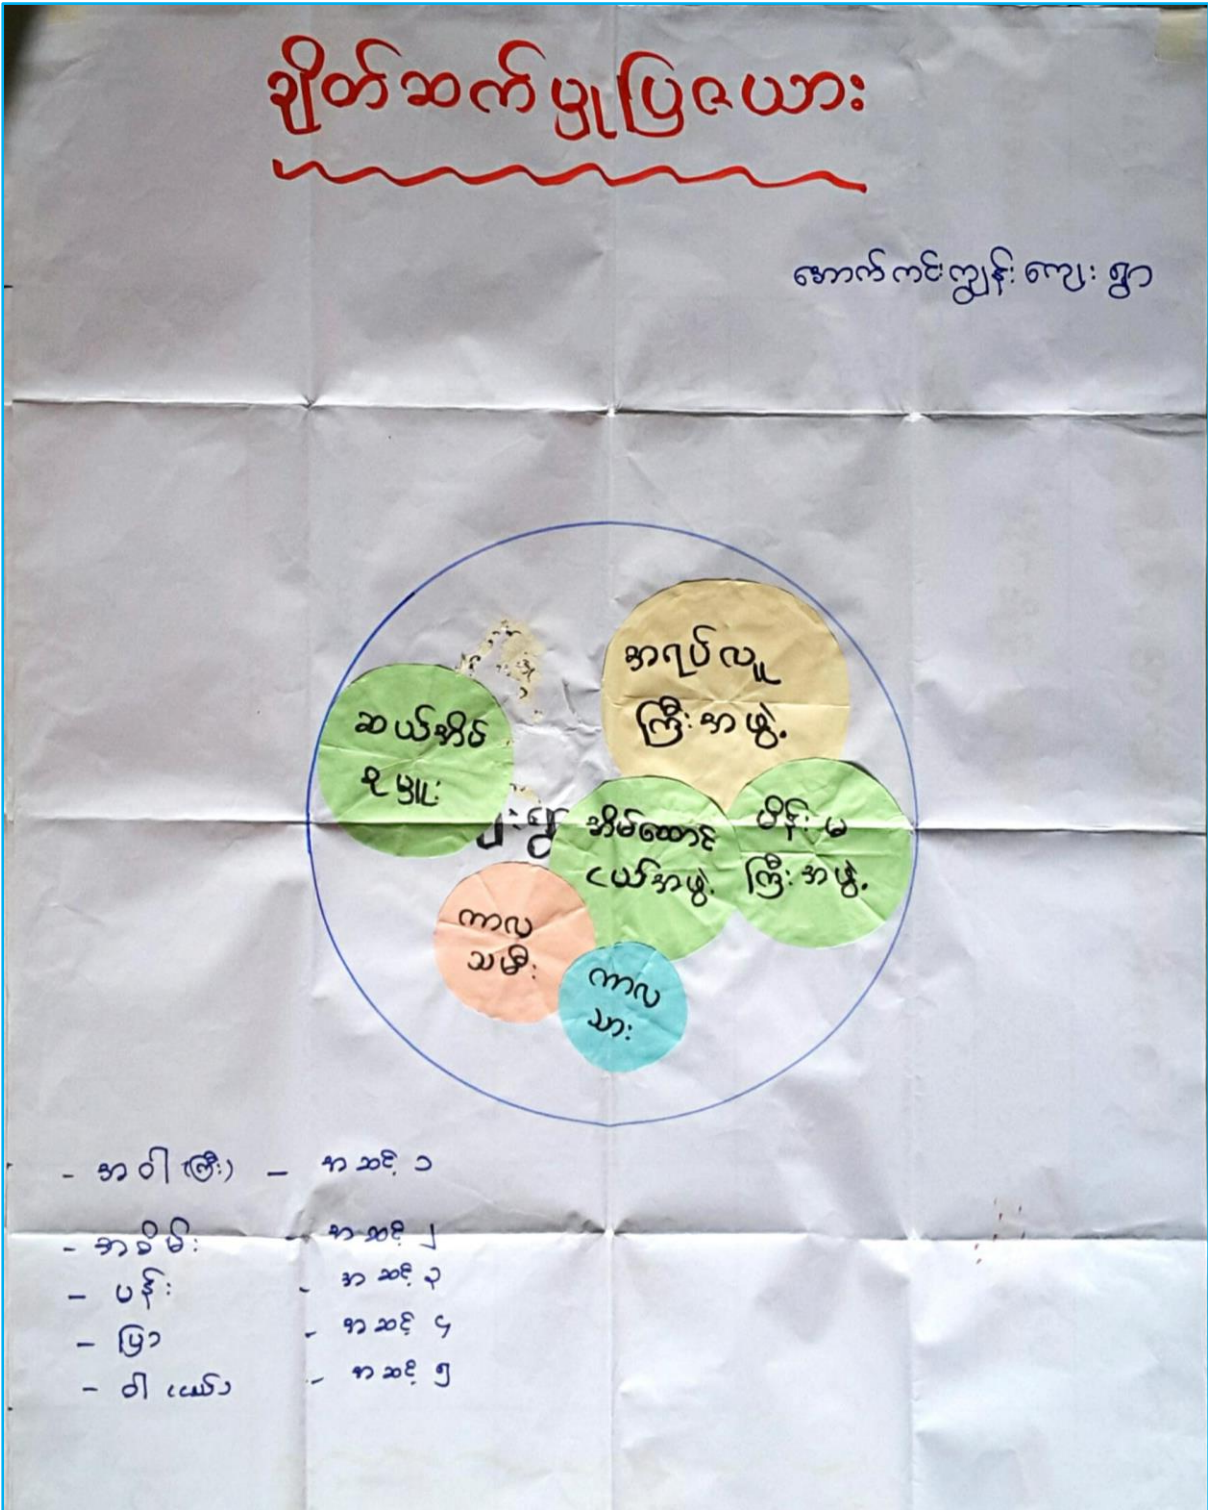 ချိတ်ဆက်မှုပြဇယား
အောက်ကင်းကျွန်းကျေးရွာ
အရပ်လူ
ကြီးအဖွဲ့
ဆယ်အိမ်
စုမှူး
အိမ်ထောင်
ငယ်အဖွဲ့
မိန်းမ
ကြီးအဖွဲ့
ကာလ
သမီး
ကာလ
သား
- အဝါ (ကြီး) - အဆင့် ၁
- အစိမ်း - အဆင့် ၂
- ပန်း - အဆင့် ၃
- ပြာ - အဆင့် ၄
- ဝါ (ငယ်) - အဆင့် ၅